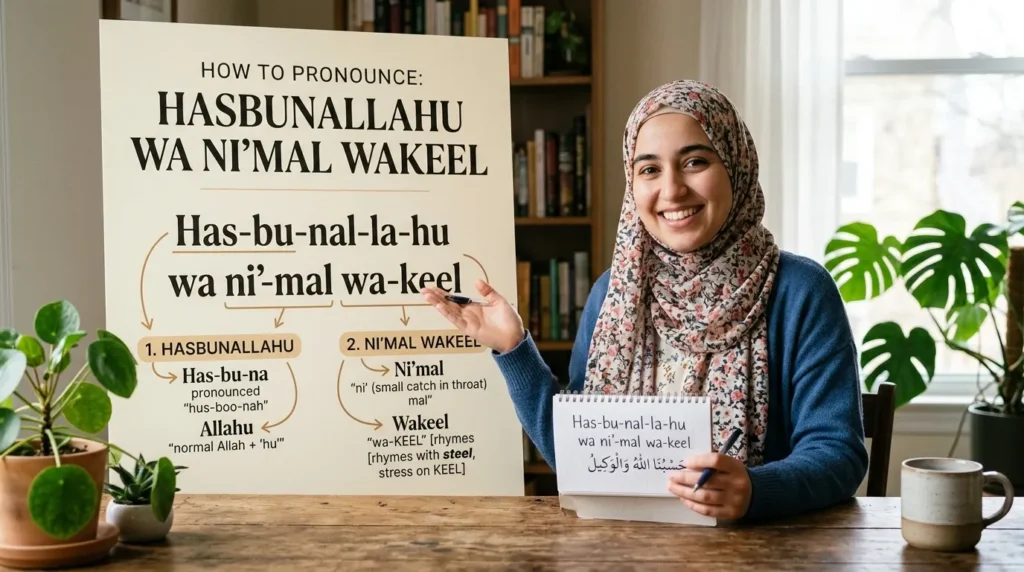 HOW TO PRONOUNCE:
HASBUNALLAHU
WA NI’MAL WAKEEL
Has-bu-nal-la-hu
wa ni’-mal wa-keel
1. HASBUNALLAHU
Has-bu-na
pronounced
“hus-boo-nah”
Allahu
“normal Allah + ‘hu’”
2. NI’MAL WAKEEL
Ni’mal
“ni’ (small catch in throat)
mal”
Wakeel
“wa-KEEL” [rhymes
[rhymes with steel,
stress on KEEL]
Has-bu-nal-la-hu
wa ni’-mal wa-keel
حَسْبُنَا اللهُ وَالْوَكِيلُ